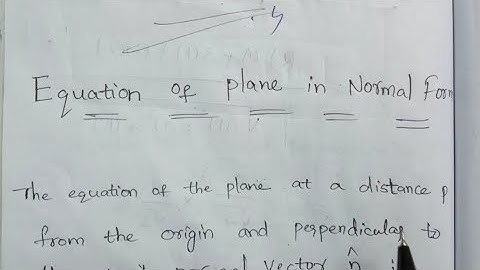 Equation of plane in Normal Form
The equation of the plane at a distance p
from the origin and perpendicular to
normal vector n̂